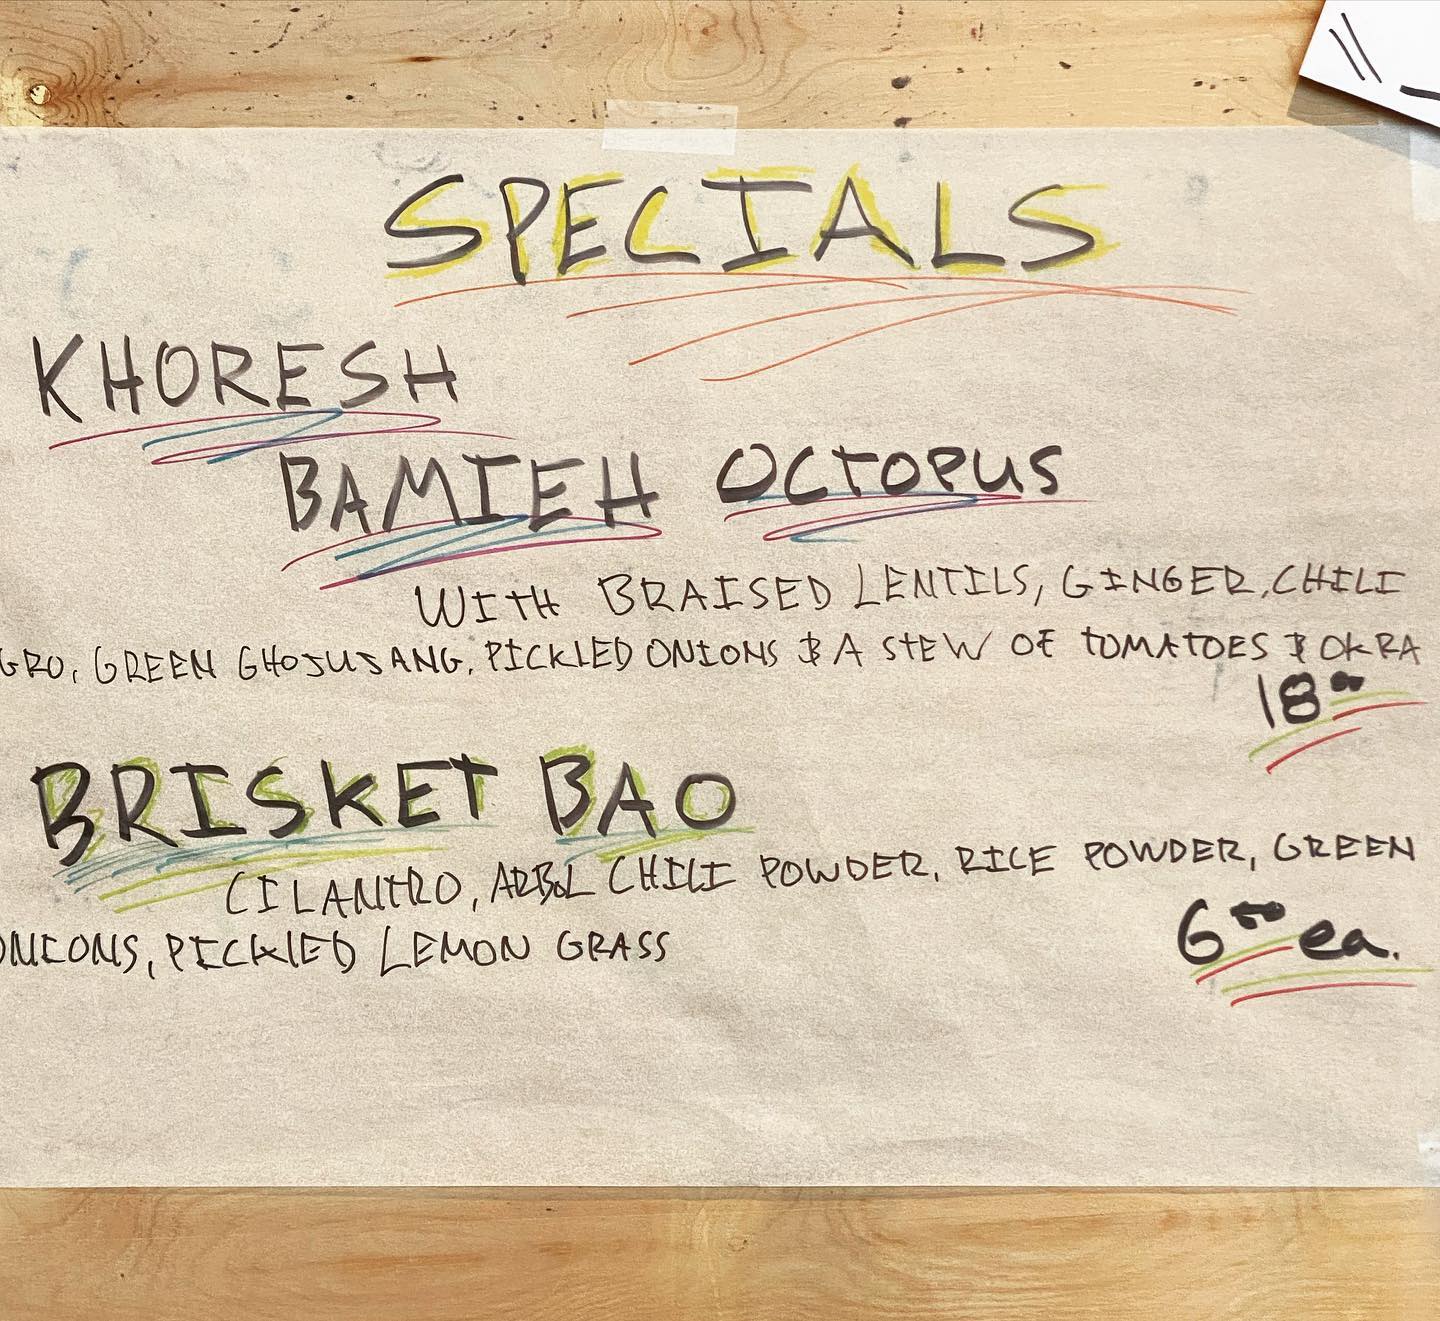 SPECIALS
KHORESH
BAMIEH OCTOPUS
WITH BRAISED LENTILS, GINGER, CHILI
GRO, GREEN GHOJUJANG, PICKLED ONIONS & A STEW OF TOMATOES & OKRA
18.00
BRISKET BAO
CILANTRO, ARBOL CHILI POWDER, RICE POWDER, GREEN
ONIONS, PICKLED LEMON GRASS
6.00 ea.